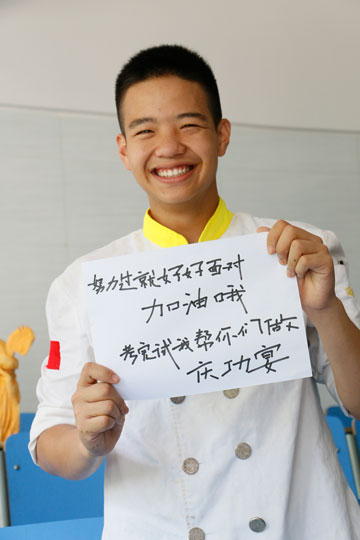 努力过就好好面对
加油哦
考完试我帮你们做
庆功宴